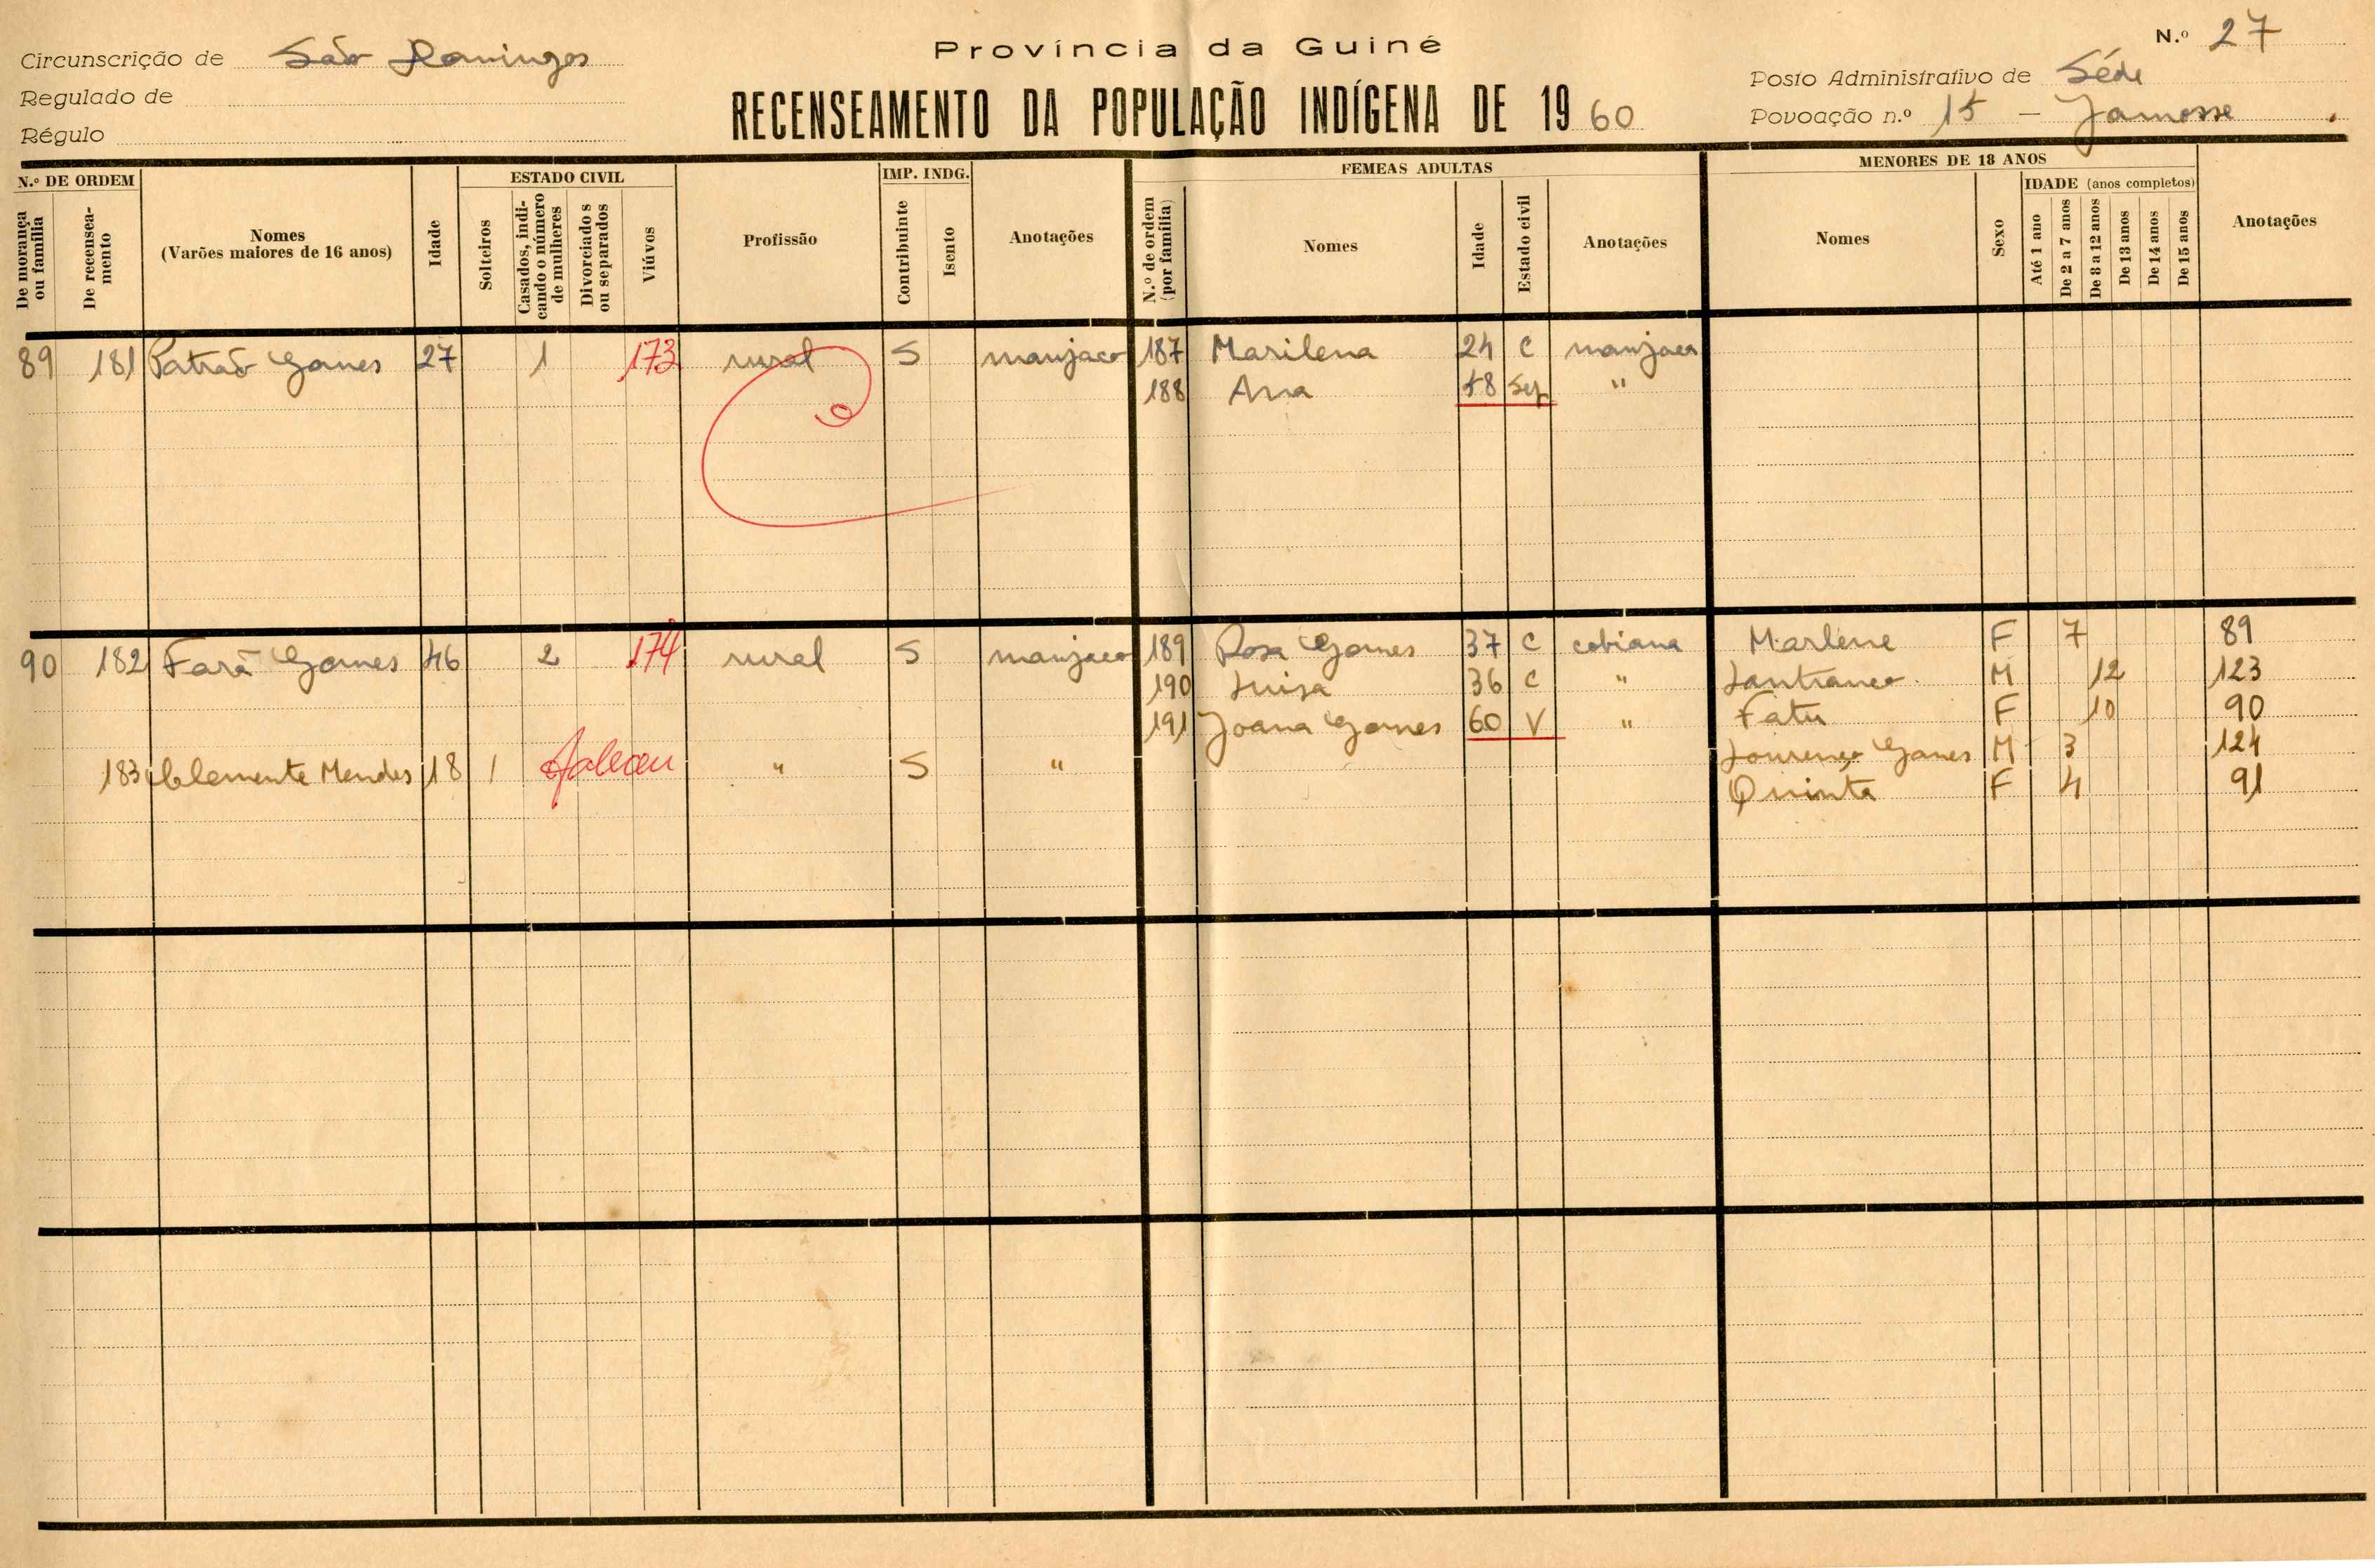 N.º 27
Província da Guiné
Circunscrição de São Domingos
Posto Administrativo de Séde
Regulado de
RECENSEAMENTO DA POPULAÇÃO INDÍGENA DE 1960
Povoação n.º 15 - Jamosse
Régulo
N.º DE ORDEM
De morança ou família
De recenseamento
Nomes
(Varões maiores de 16 anos)
Idade
ESTADO CIVIL
Solteiros
Casados, indicando o número de mulheres
Divorciados ou separados
Viúvos
Profissão
IMP. INDG.
Contribuinte
Isento
Anotações
FEMEAS ADULTAS
N.º de ordem (por família)
Nomes
Idade
Estado civil
Anotações
MENORES DE 18 ANOS
Nomes
Sexo
IDADE (anos completos)
Até 1 ano
De 2 a 7 anos
De 8 a 12 anos
De 13 anos
De 14 anos
De 15 anos
Anotações
89 181 Patrão Gomes 27 1 173 rural S manjaco 187 Marilena 24 C manjaca
188 Ana 58 Sep "
90 182 Farã Gomes 46 2 174 rural S manjaco 189 Rosa Gomes 37 C cobiana Marlene F 7 89
190 Luisa 36 C " M 12 123
191 Joana Gomes 60 V " Fatu F 10 90
Lourenço Gomes M 3 124
183 Clemente Mendes 18 1 " S " Quinta F 4 91